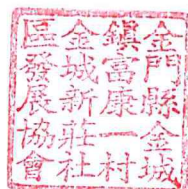 金門縣金城
鎮富康一村
金城新莊社
區發展協會